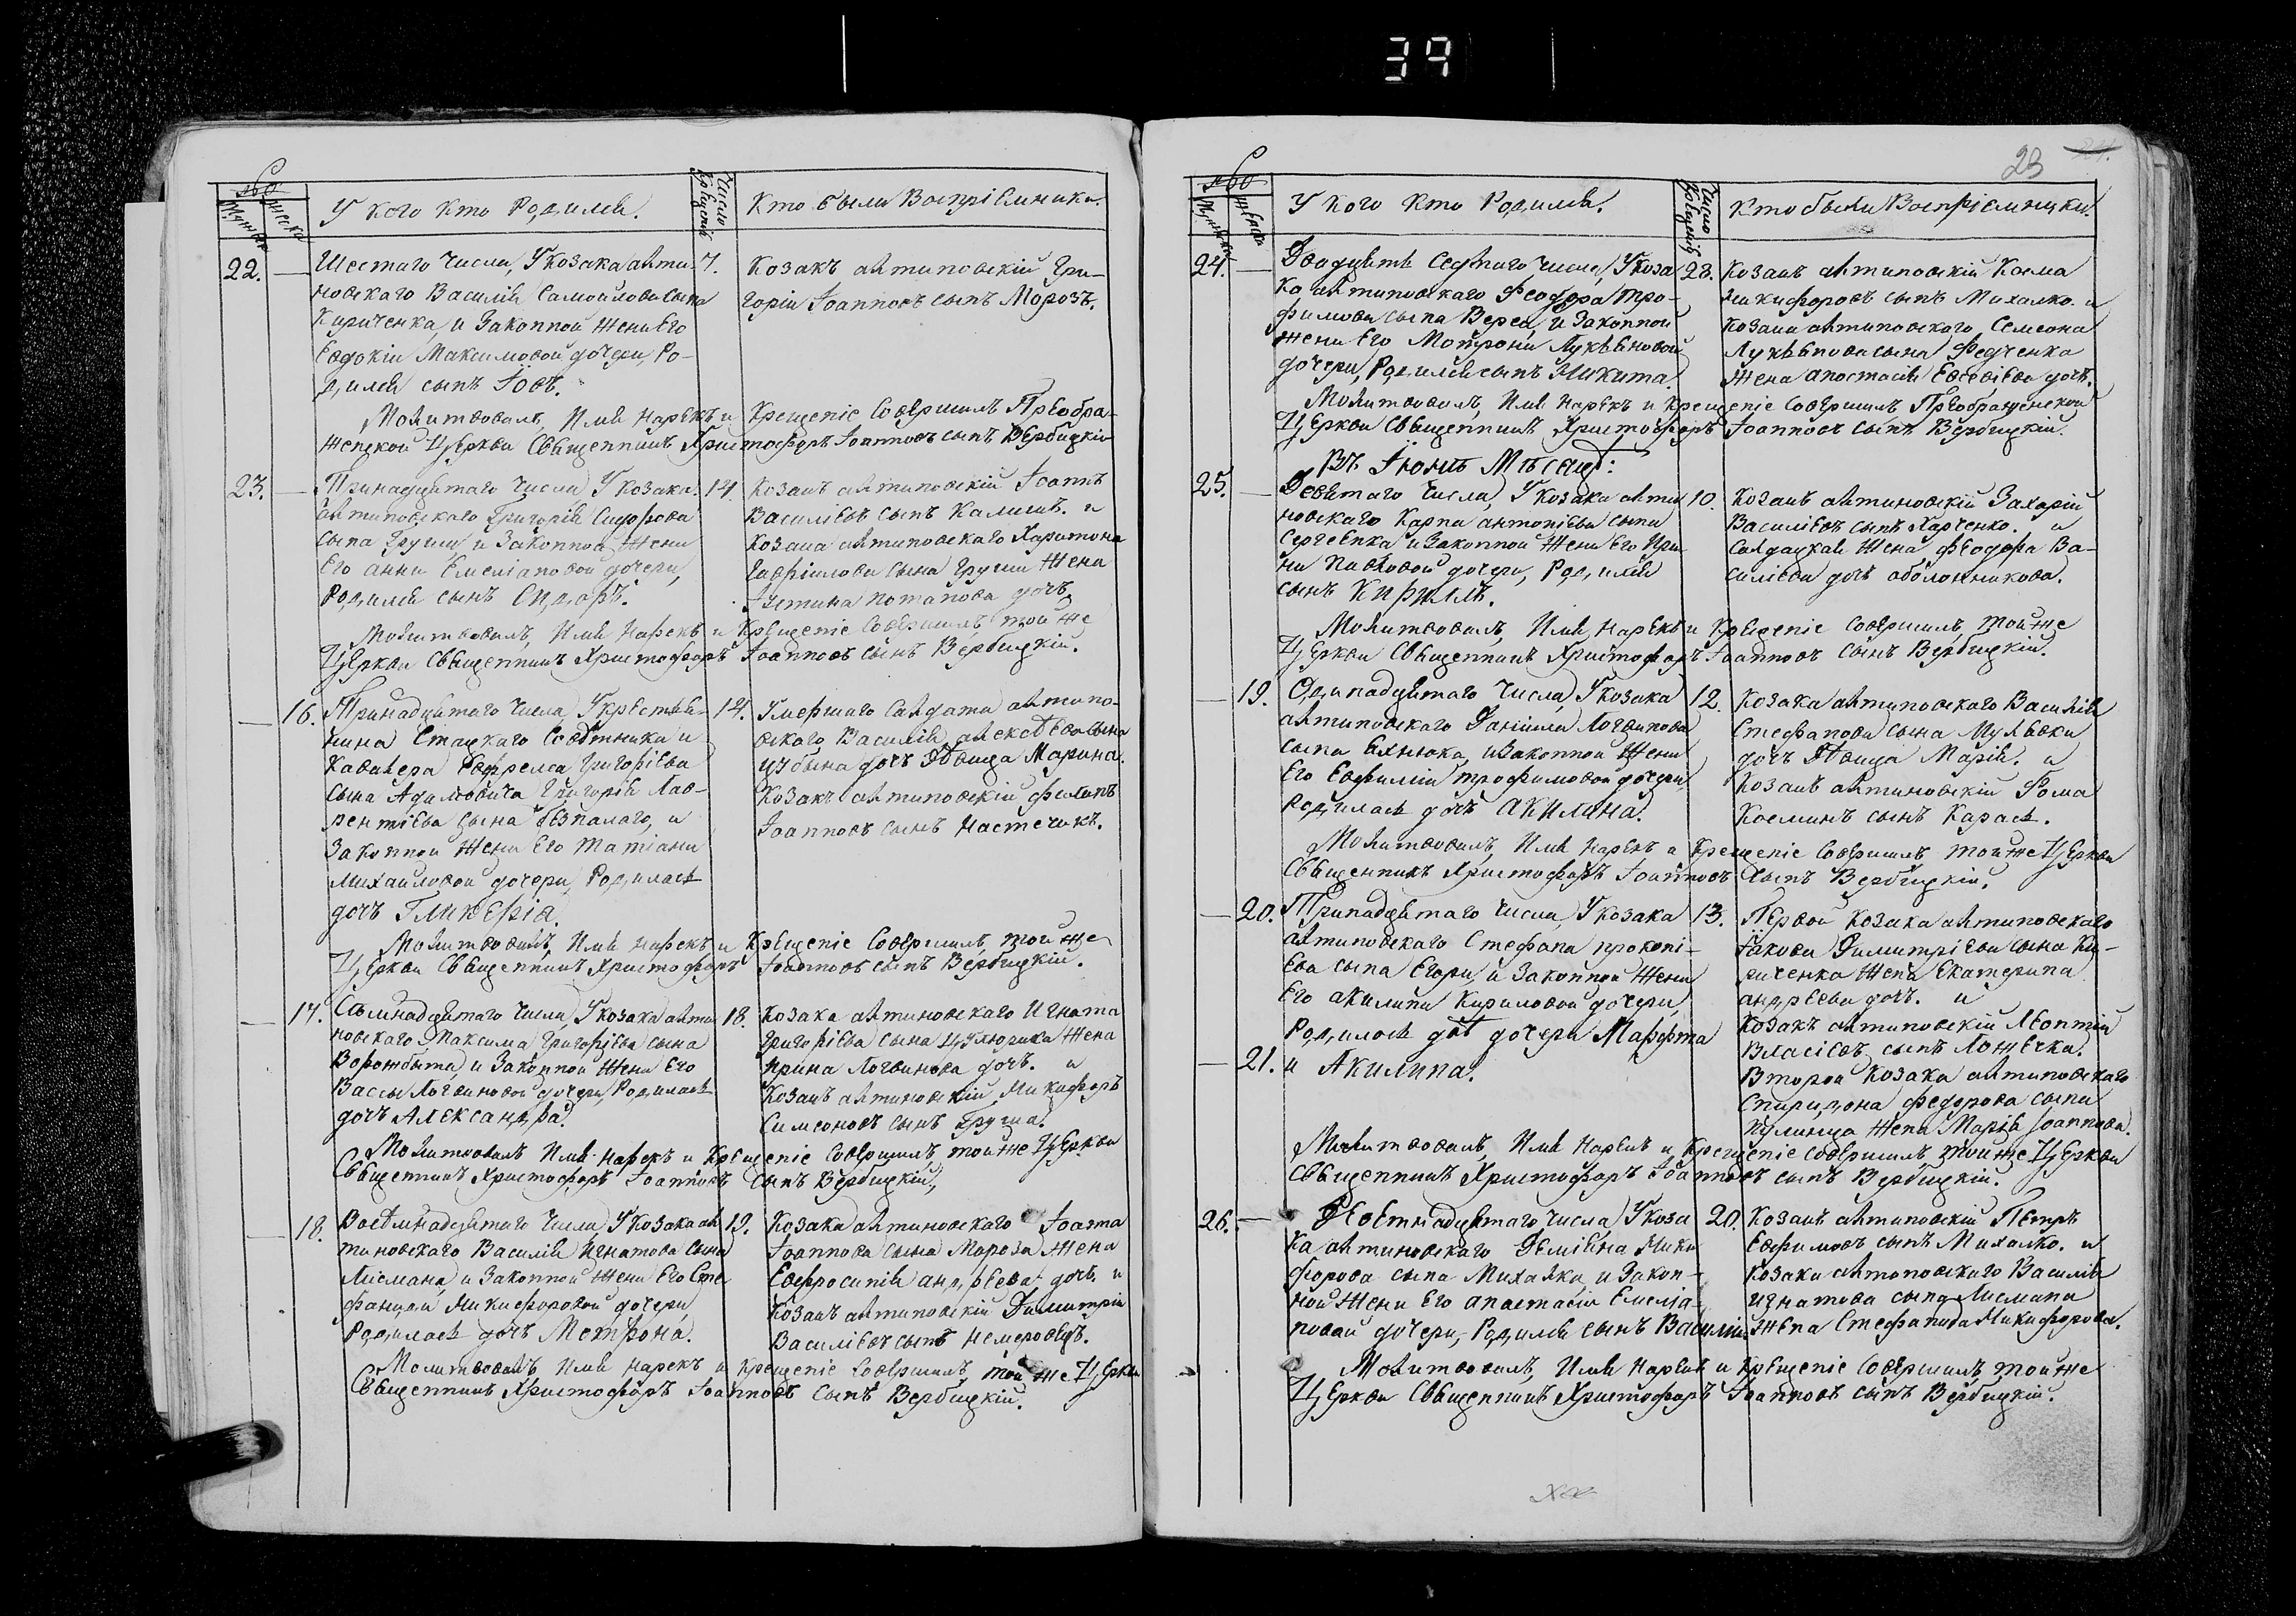 39
№
Мужеска
женска
У кого кто Родился.
Число Крещенія
Кто были Воспріемники.
22.
Шестаго Числа, У козака анти-
повскаго Василія Самойлова сына
Кириченка, и Законной жени Его
Евдокіи Максимовой дочери, Ро-
дился сынъ Іовъ.
7.
Козакъ антиповскій Гри-
горій Іоанновъ сынъ Морозъ.
Молитвовалъ, Имя Нарекъ и Крещеніе Совершилъ Преобра-
женской Церкви Священникъ Христофоръ Іоанновъ сынъ Вербицкій
23.
Тринадцятаго Числа, У козака
антиповскаго Григорія Сидорова
сына Груши и Законной Жени
Его анни Емеліановой дочери,
Родился сынъ Сидоръ.
14.
Козакъ антиповскій Іоаннъ
Василіевъ сынъ Калишъ. и
Козака антиповскаго Харитона
Гаврилова сына Груши Жена
Іустина потапова дочь,
Молитвовалъ, Имя Нарекъ и Крещеніе Совершилъ, той же
Церкви Священникъ Христофоръ Іоанновъ сынъ Вербицкій.
16.
Тринадцятаго Числа, У крестья-
нина Стацкаго Советника и
Кавалера Григоріева
сына Адамовича Григорія Лав-
рентіева сына безпалаго, и
Законной Жени Его татіани
Михайловой дочери, Родилась
дочь Гликерія.
14.
Умершаго Салдата антипо-
вскаго Василія алексеева сына
дочь Девица Марина.
Козакъ антиповскій Филипъ
Іоанновъ сынъ Настечикъ.
Молитвовалъ, Имя Нарекъ и Крещеніе Совершилъ, той же
Церкви Священникъ Христофоръ Іоанновъ сынъ Вербицкій.
17.
Семнадцятаго Числа, У козака анти-
повскаго Максима Григоріева сына
Ворожбыта, и Законной Жени Его
Вассы Логвиновой дочери, Родилась
дочь Александра.
18.
Козака антиповскаго Игната
Григоріева сына Жена
Ирина Логвинова дочь. и
Козакъ антиповскій Микифоръ
Симеоновъ сынъ Груша.
Молитвовалъ Имя Нарекъ и Крещеніе Совершилъ, той же Церкви
Священникъ Христофоръ Іоанновъ сынъ Вербицкій,
18.
Восемнадцятаго Числа, У козака ан
типовскаго Василія Игнатова сына
Лисмана, и Законной Жени Его Сте
фаниды Микифоровой дочери,
Родилась дочь Мотрона.
19.
Козака антиповскаго Іоанна
Іоаннова сына Мороза Жена
Евфросинія андреева дочь. и
Козакъ антиповскій Димитрій
Василіевъ сынъ Немеровецъ.
Молитвовалъ Имя нарекъ и Крещеніе Совершилъ, той же Церкви
Священникъ Христофоръ Іоанновъ сынъ Вербицкій.
23
№
У кого кто Родился.
Число Крещенія
Кто были Воспріемники.
24.
Двадцять Седмаго Числа, У коза
ка антиповскаго Феодора тро-
фимова сына Верса, и Законной
жени Его Мотрони Лукяновой
дочери, Родился сынъ Микита.
28.
Козакъ антиповскій Косма
Никифоровъ сынъ Михалко. и
Козака антиповскаго Семеона
Лукянова сына Федченка
Жена анастасія Евсевіева дочь.
Молитвовалъ, Имя Нарекъ и Крещеніе Совершилъ, Преображенской
Церкви Священникъ Христофоръ Іоанновъ сынъ Вербицкій.
Въ Іюнѣ Мѣсяцѣ:
25.
Девятаго Числа, У козака анти
повскаго Карпа антоніева сына
Сергеенка и Законной Жени Его Ири
ни Павловой дочери, Родился
сынъ Кирилъ.
10.
Козакъ антиповскій Захарій
Василіевъ сынъ Харченко. и
Салдацкая Жена Феодора Ва-
силіева дочь оболонникова.
Молитвовалъ, Имя Нарекъ и Крещеніе Совершилъ, той же
Церкви Священникъ Христофоръ Іоанновъ сынъ Вербицкій.
19.
Одинадцятаго Числа, У козака
антиповскаго Даніила Логвинова
сына и Законной Жени
Его Евфиміи трофимовой дочери
Родилась дочь Акилина.
12.
Козака антиповскаго Василія
Стефанова сына
дочь Девица Марія. и
Козакъ антиповскій Фома
Косминъ сынъ Карась.
Молитвовалъ, Имя Нарекъ и Крещеніе Совершилъ той же Церкви
Священникъ Христофоръ Іоанновъ сынъ Вербицкій.
20.
Тринадцятаго Числа, У козака
антиповскаго Стефана прокопі-
Ева сына Егори, и Законной Жени
Его акилини Кириловой дочери,
Родилось две дочери Марфа
21.
и Акилина.
13.
Первой козака антиповскаго
Іакова Димитріева сына Ки-
риченка Жена Екатерина
андреева дочь. и
Козакъ антиповскій Леонтій
Власіевъ сынъ Ложечка.
Второй козака антиповскаго
Спиридона Федорова сына
Жена Марія Іоаннова.
Молитвовалъ, Имя Нарекъ и Крещеніе Совершилъ той же Церкви
Священникъ Христофоръ Іоанновъ сынъ Вербицкій.
26.
числа, У коза
ка антиповскаго Деміяна Мики
форова сына Михалка, и Закон-
ной Жени Его анастасіи Емеліа-
новой дочери, Родился сынъ Василій.
20.
Козакъ антиповскій Петръ
Евфимовъ сынъ Михалко. и
Козака антиповскаго Василія
игнатова сына Лисмана
Жена Стефанида Микифорова.
Молитвовалъ, Имя Нарекъ и Крещеніе Совершилъ, той же
Церкви Священникъ Христофоръ Іоанновъ сынъ Вербицкій.